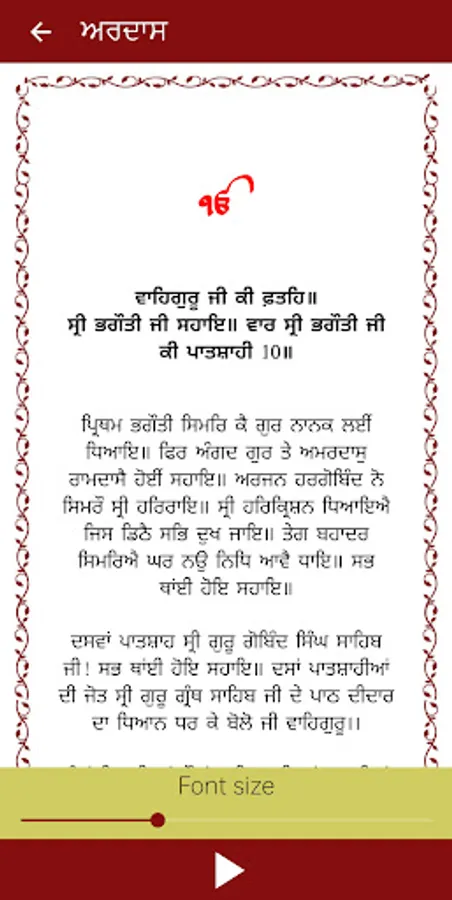 ਅਰਦਾਸ
ੴ
ਵਾਹਿਗੁਰੂ ਜੀ ਕੀ ਫ਼ਤਹਿ॥
ਸ੍ਰੀ ਭਗੌਤੀ ਜੀ ਸਹਾਇ॥ ਵਾਰ ਸ੍ਰੀ ਭਗੌਤੀ ਜੀ
ਕੀ ਪਾਤਸ਼ਾਹੀ 10॥
ਪ੍ਰਿਥਮ ਭਗੌਤੀ ਸਿਮਰਿ ਕੈ ਗੁਰ ਨਾਨਕ ਲਈਂ
ਧਿਆਇ॥ ਫਿਰ ਅੰਗਦ ਗੁਰ ਤੇ ਅਮਰਦਾਸੁ
ਰਾਮਦਾਸੈ ਹੋਈਂ ਸਹਾਇ॥ ਅਰਜਨ ਹਰਗੋਬਿੰਦ ਨੋ
ਸਿਮਰੌ ਸ੍ਰੀ ਹਰਿਰਾਇ॥ ਸ੍ਰੀ ਹਰਿਕ੍ਰਿਸ਼ਨ ਧਿਆਇਐ
ਜਿਸ ਡਿਠੈ ਸਭਿ ਦੁਖ ਜਾਇ॥ ਤੇਗ ਬਹਾਦਰ
ਸਿਮਰਿਐ ਘਰ ਨਉ ਨਿਧਿ ਆਵੈ ਧਾਇ॥ ਸਭ
ਥਾਂਈ ਹੋਇ ਸਹਾਇ॥
ਦਸਵਾਂ ਪਾਤਸ਼ਾਹ ਸ੍ਰੀ ਗੁਰੂ ਗੋਬਿੰਦ ਸਿੰਘ ਸਾਹਿਬ
ਜੀ! ਸਭ ਥਾਂਈ ਹੋਇ ਸਹਾਇ॥ ਦਸਾਂ ਪਾਤਸ਼ਾਹੀਆਂ
ਦੀ ਜੋਤ ਸ੍ਰੀ ਗੁਰੂ ਗ੍ਰੰਥ ਸਾਹਿਬ ਜੀ ਦੇ ਪਾਠ ਦੀਦਾਰ
ਦਾ ਧਿਆਨ ਧਰ ਕੇ ਬੋਲੋ ਜੀ ਵਾਹਿਗੁਰੂ।।
Font size